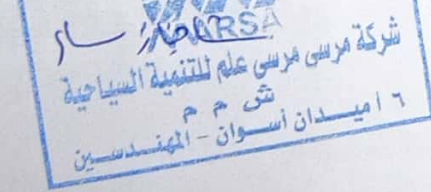 MARSA
شركة مرسى مرسى علم للتنمية السياحية
ش م م
٦ أ ميدان أسوان - المهندسين